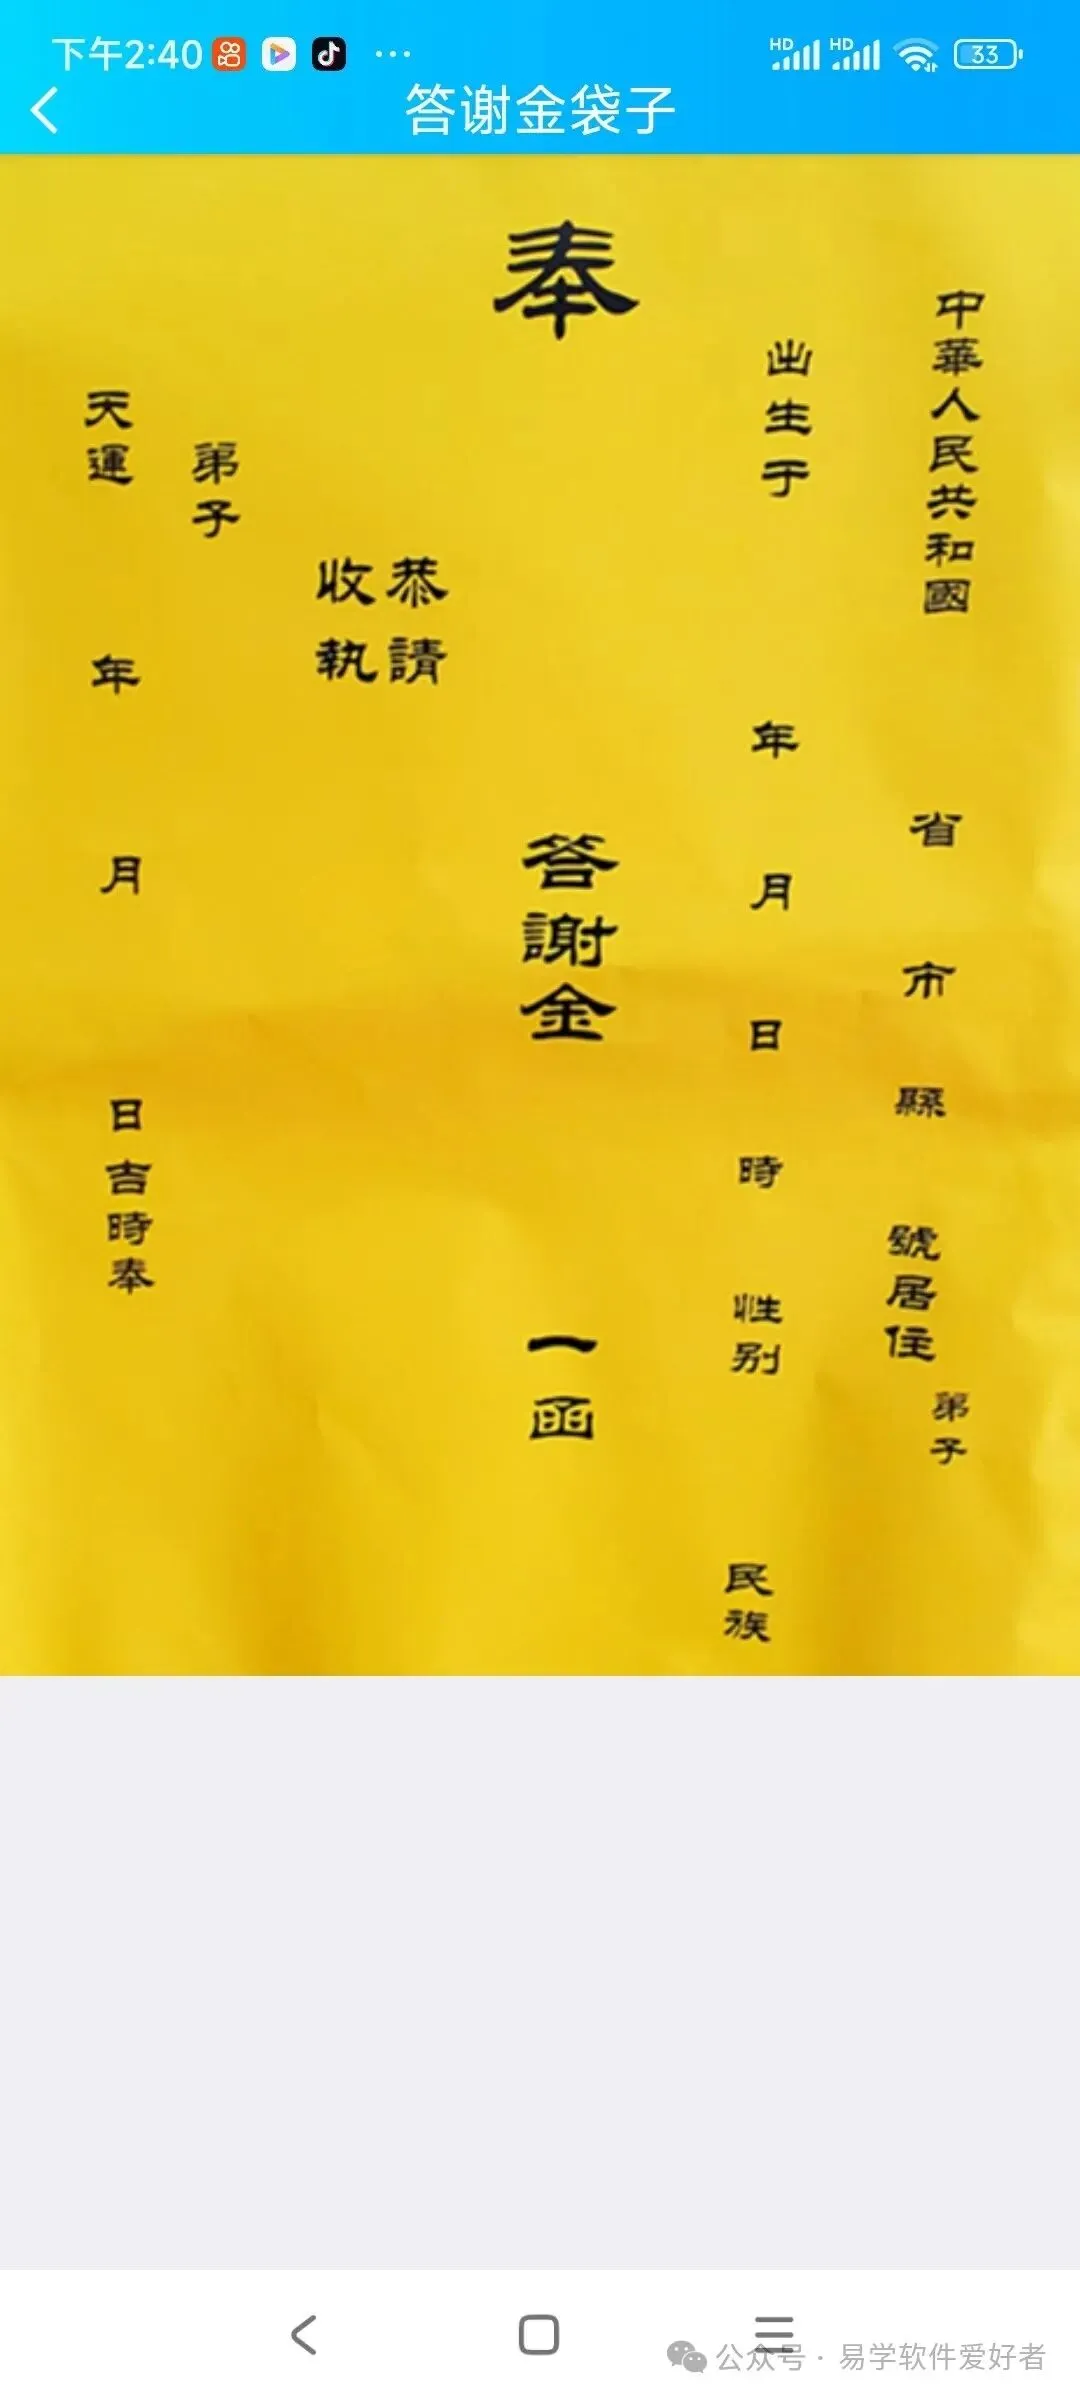 下午2:40
HD HD 33
答谢金袋子
中華人民共和國 省 市 縣 號居住 弟子
出生于 年 月 日 時 性别 民族
奉 答謝金 一函
恭請
收執
弟子
天運 年 月 日吉時奉
公众号 · 易学软件爱好者